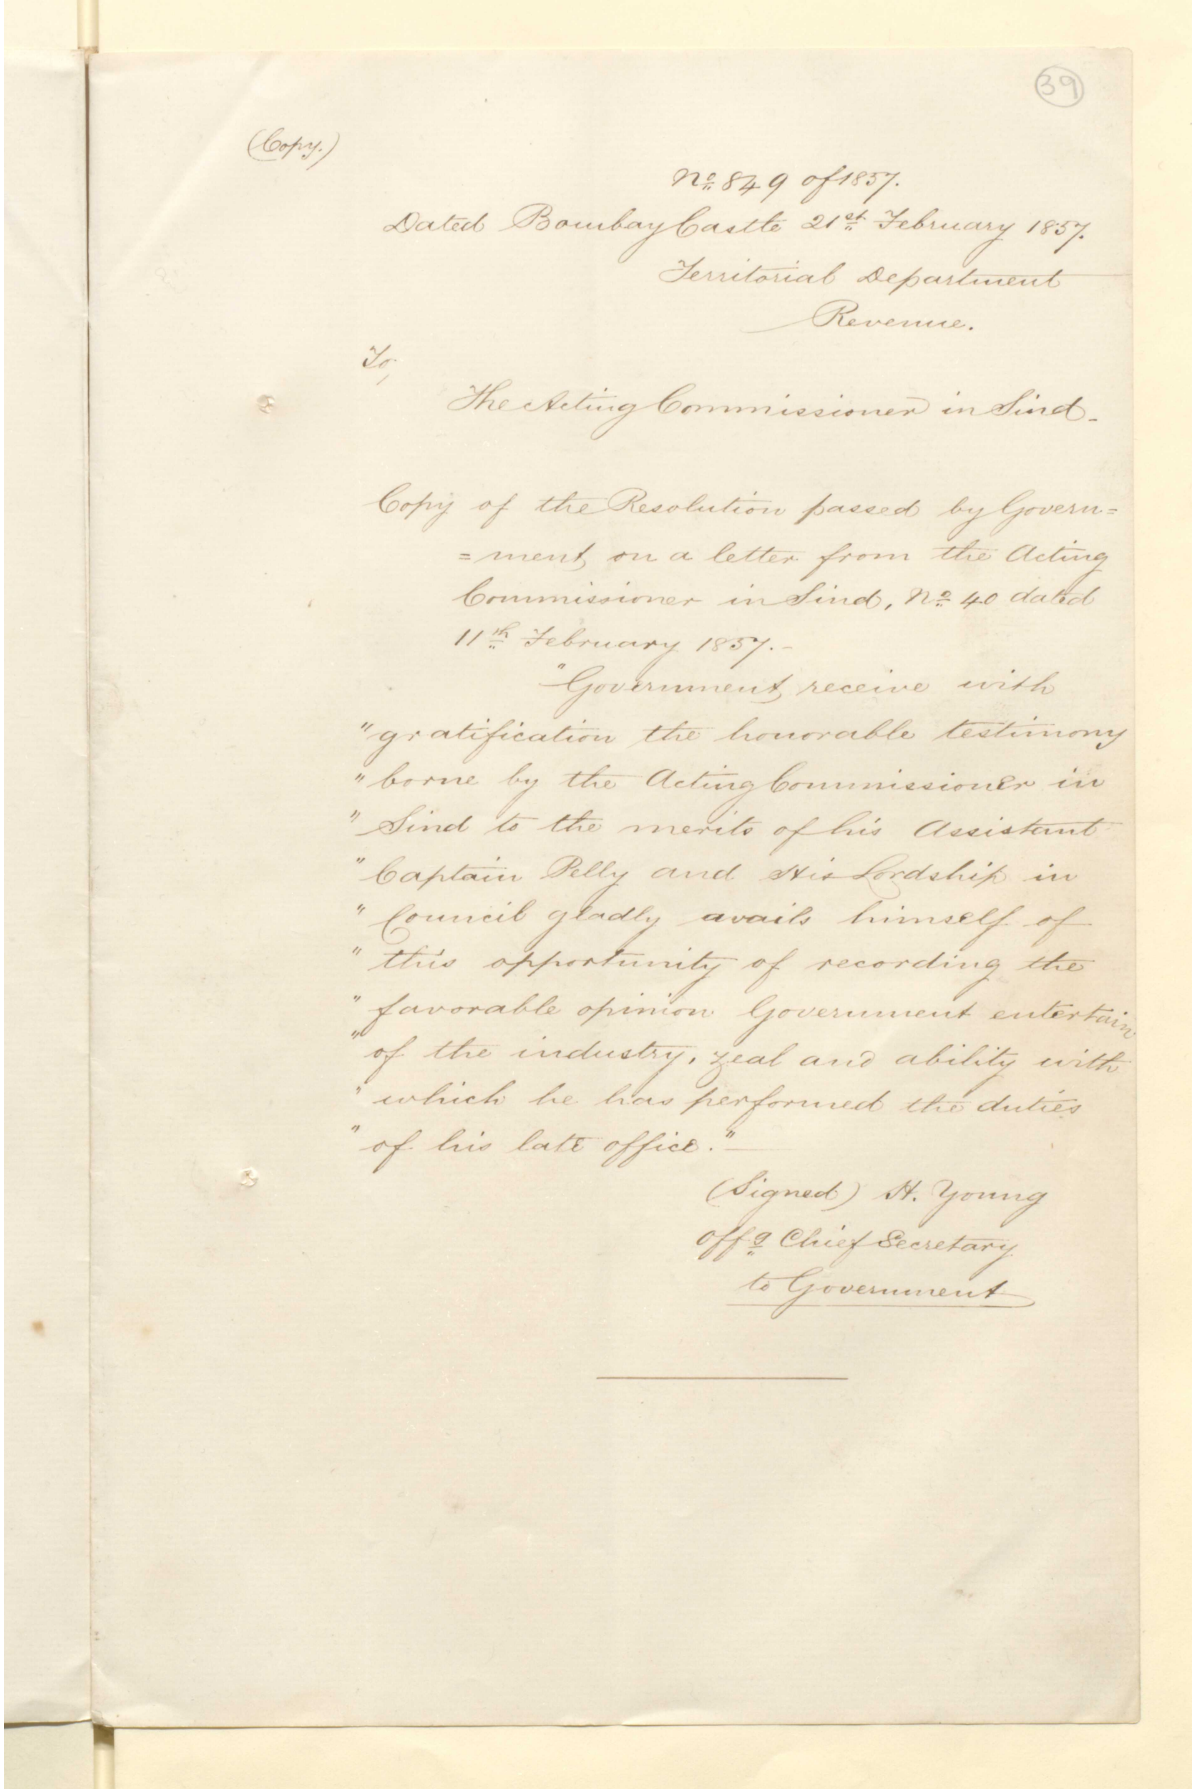 39
(Copy.)
No. 849 of 1857.
Dated Bombay Castle 21st February 1857.
Territorial Department
Revenue.
To,
The Acting Commissioner in Sind_
Copy of the Resolution passed by Govern=
=ment, on a letter from the Acting
Commissioner in Sind, No. 40 dated
11th February 1857.-
"Government, receive with
"gratification the honorable testimony
"borne by the Acting Commissioner in
"Sind to the merits of his Assistant
"Captain Pelly and His Lordship in
"Council gladly avails himself of
"this opportunity of recording the
"favorable opinion Government entertain
"of the industry, zeal and ability with
"which he has performed the duties
"of his late office."_
(Signed) H. Young
Offg Chief Secretary
to Government